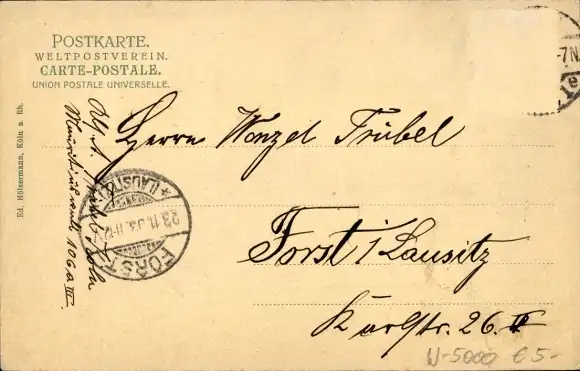 POSTKARTE.
WELTPOSTVEREIN.
CARTE-POSTALE.
UNION POSTALE UNIVERSELLE.
Ed. Hölzermann, Köln a. Rh.
Herrn Wenzel Trübel
Forst i/Lausitz
Karlstr. 26. II
Köln
106a III.
FORST
(LAUSITZ)
23.11.03. 11-12
-7N
W-5000 € 5.-